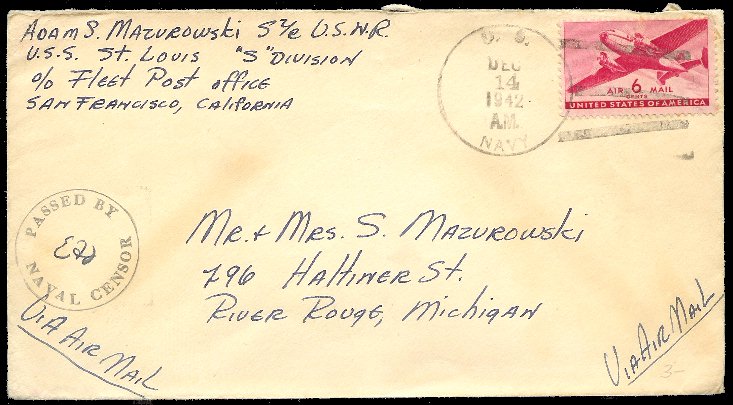 Adam S. Mazurowski S2/c U.S.N.R.
U.S.S. St. Louis "S" Division
c/o Fleet Post Office
San Francisco, California
U. S.
DEC
14
1942
A.M.
NAVY
AIR 6 MAIL
CENTS
UNITED STATES OF AMERICA
PASSED BY
NAVAL CENSOR
Mr. & Mrs. S. Mazurowski
296 Haltiner St.
River Rouge, Michigan
Via Air Mail
Via Air Mail
3-